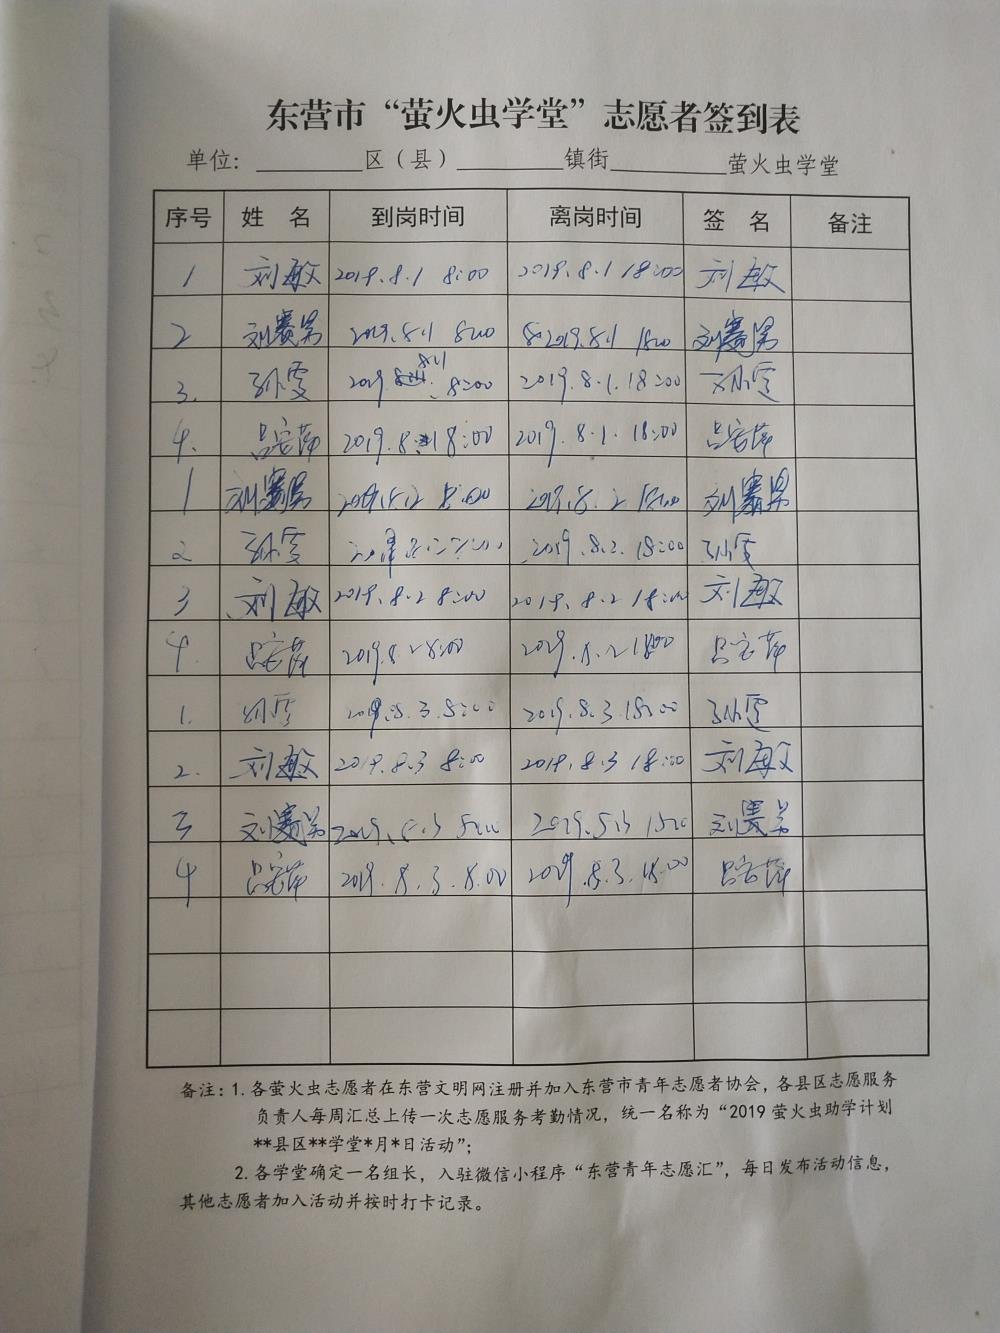 东营市“萤火虫学堂”志愿者签到表
单位：________区（县）________镇街________萤火虫学堂
序号 姓 名 到岗时间 离岗时间 签 名 备注
1 刘敏 2019.8.1 8:00 2019.8.1 18:00 刘敏
2 刘赛男 2019.8.1 8:00 2019.8.1 18:00 刘赛男
3. 孙雯 2019. 8.1 8:00 2019.8.1.18:00 孙雯
4. 2019.8 8:00 2019.8.1.18:00
1 刘赛男 2019.8.2 8:00 2019.8.2 18:00 刘赛男
2 孙雯 2019.8.2.18:00 孙雯
3 刘敏 2019.8.2 8:00 2019.8.2 18:00 刘敏
4. 2019.8.2 8:00 2019.8.2 18:00
1. 孙雯 2019.8.3.8:00 2019.8.3.18:00 孙雯
2. 刘敏 2019.8.3 8:00 2019.8.3 18:00 刘敏
3 刘赛男 2019.8.3 8:00 2019.8.3 18:00 刘赛男
4 2019.8.3.8:00 2019.8.3.18:00
备注：1. 各萤火虫志愿者在东营文明网注册并加入东营市青年志愿者协会，各县区志愿服务
负责人每周汇总上传一次志愿服务考勤情况，统一名称为“2019 萤火虫助学计划
**县区**学堂*月*日活动”；
2. 各学堂确定一名组长，入驻微信小程序“东营青年志愿汇”，每日发布活动信息，
其他志愿者加入活动并按时打卡记录。